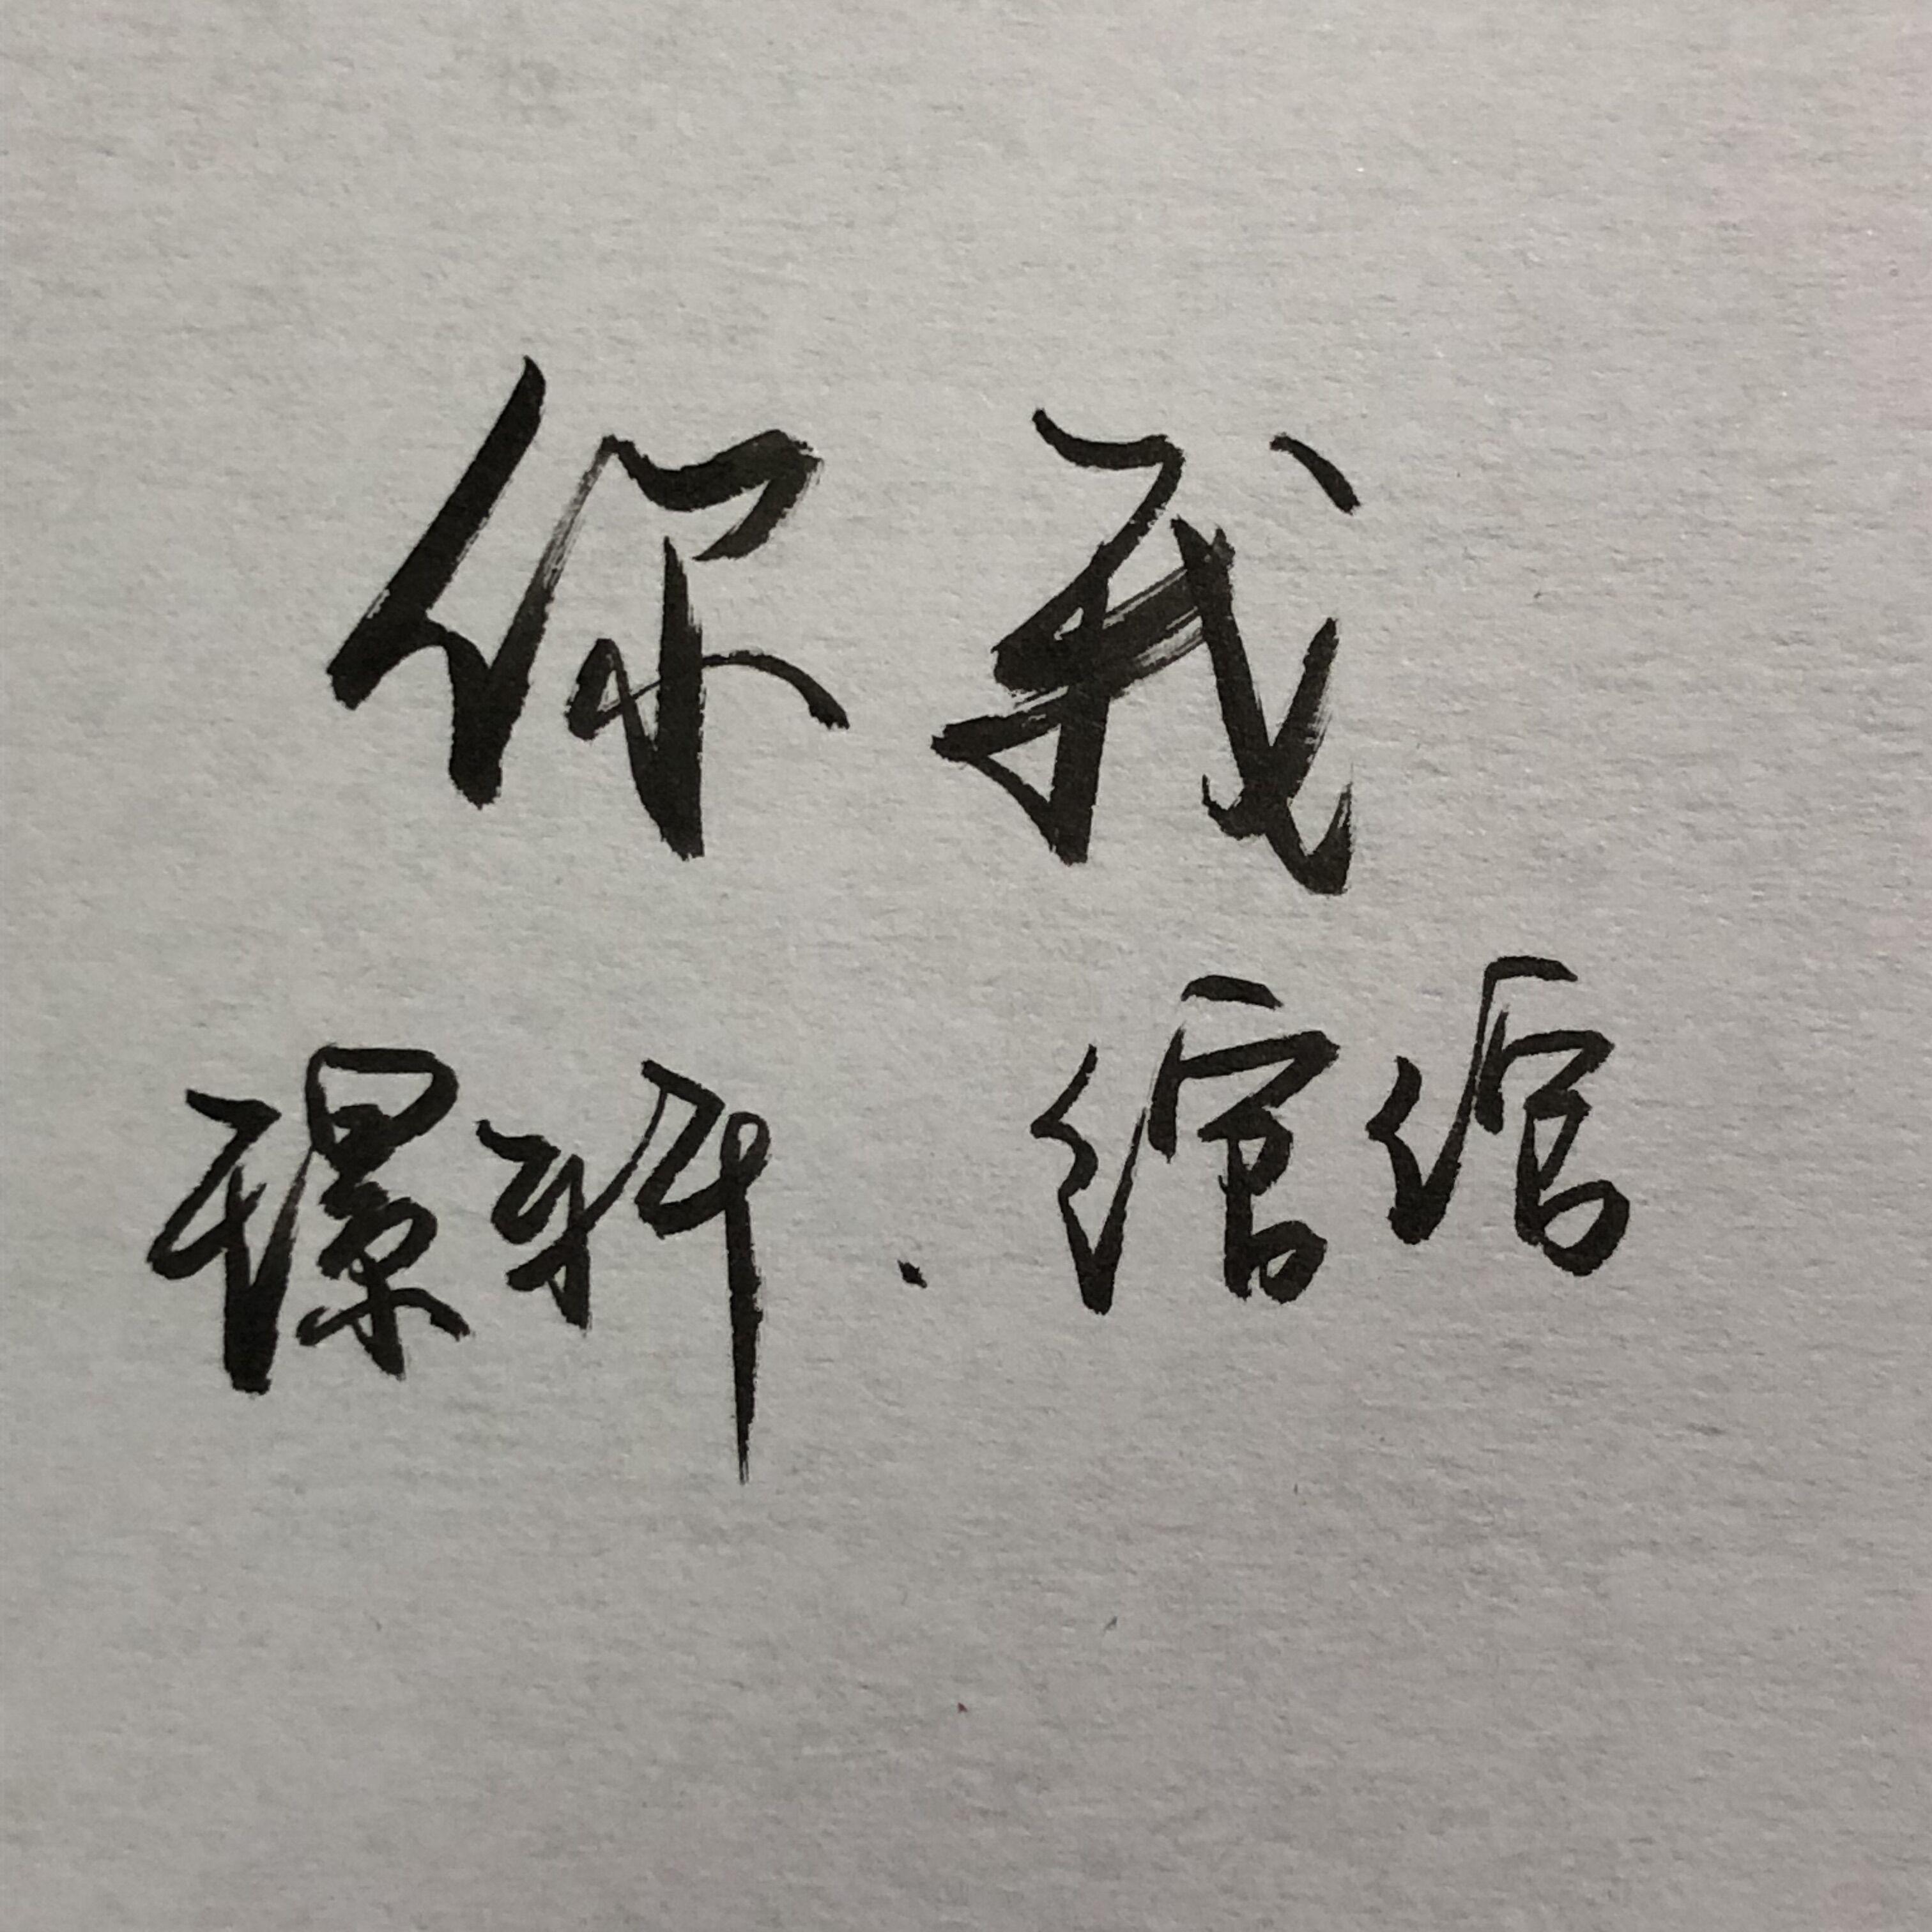 你我
璟轩.绾绾